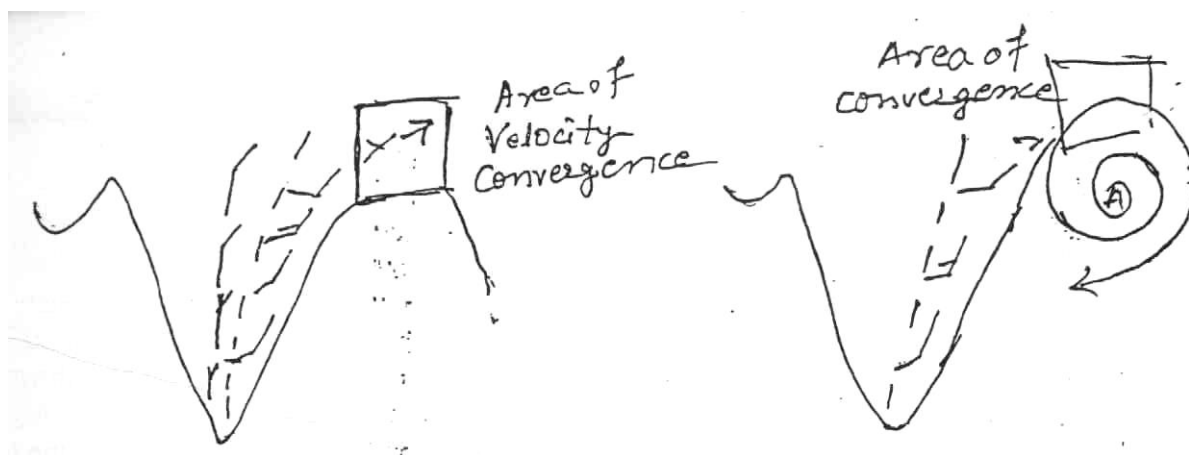 Area of
Velocity
Convergence
Area of
convergence
A